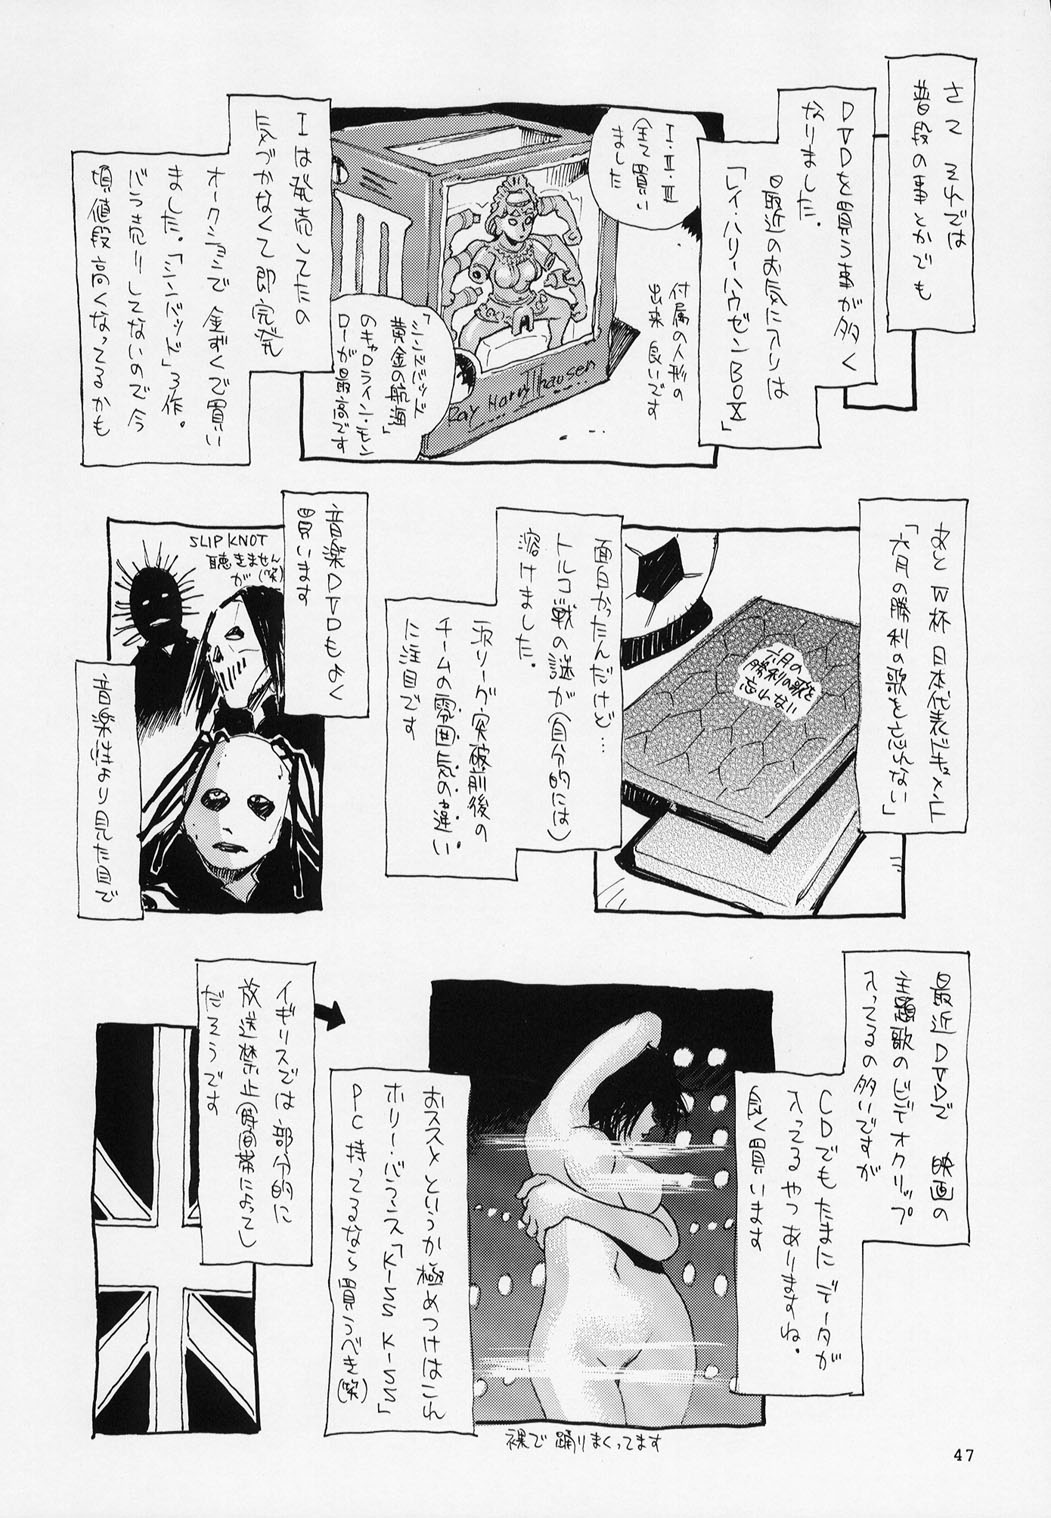 さて それでは
普段の事とかでも
DVDを買う事が多く
なりました。
最近のお気に入りは
「レイ・ハリーハウゼンBOX」
I・II・III
全て買い
ました
付属の人形の
出来 良いです
Ray Harryhausen
II
「シンドバッド
黄金の航海」
のキャロライン・モン
ローが最高です
Iは発売してたの
気づかなくて即完売
オークションで金ずくで買い
ました。「シンバッド」3作。
バラ売りしてないので今
頃値段高くなってるかも
あと W杯 日本代表ドキュメント
「六月の勝利の歌を忘れない」
六月の
勝利の歌を
忘れない
面白かったんだけど…
トルコ戦の謎が(自分的には)
溶けました。
次リーグ突破前後の
チームの雰囲気の違い。
に注目です
音楽DVDもよく
買います
SLIP KNOT
聴きません
が(笑)
音楽性より見た目で
最近DVDで 映画の
主題歌のビデオクリップ
入ってるの多いですが
CDでもたまにデータが
入ってるやつありますね。
良く買います
おススメというか極めつけはこれ
ホリー・バランス「KISS KISS」
PC持ってるなら買うべき(笑)
裸で踊りまくってます
イギリスでは部分的に
放送禁止(時間帯によって)
だそうです
47